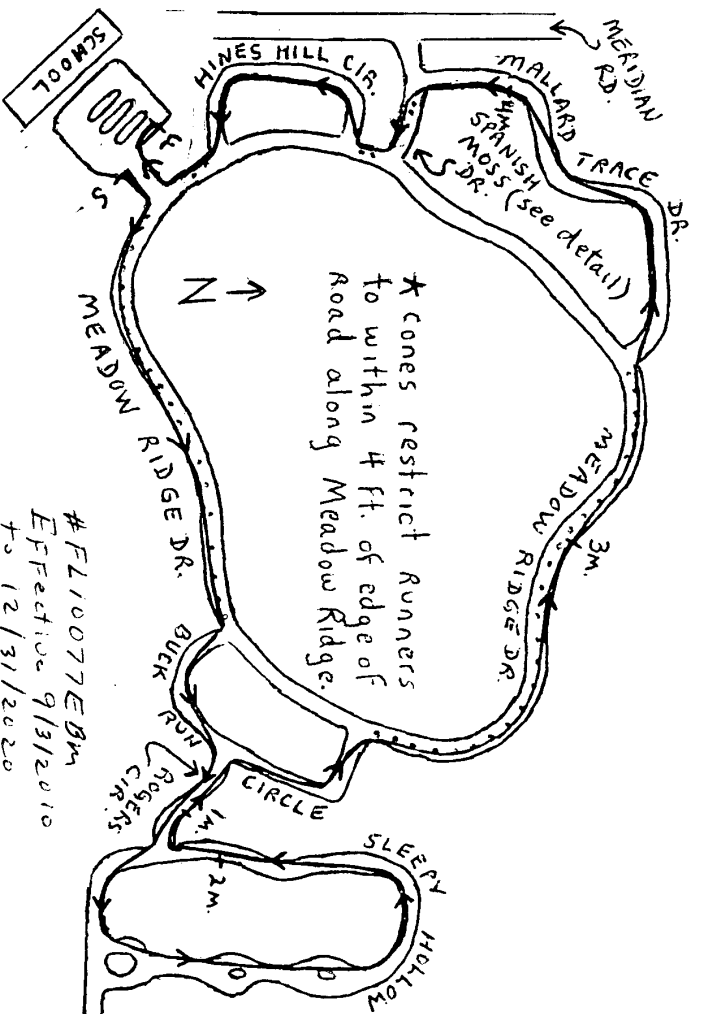 SCHOOL
HINES HILL CIR.
MERIDIAN
RD.
MALLARD TRACE DR.
4m
SPANISH
MOSS
DR. (see detail)
F
S
N
* cones restrict runners
to within 4 ft. of edge of
Road along Meadow Ridge.
MEADOW RIDGE DR.
MEADOW RIDGE DR.
3m.
BUCK RUN
CIRCLE
ROGERS
CIR.
1m.
2m.
SLEEPY HOLLOW
#FL10077EBM
Effective 9/3/2010
to 12/31/2020